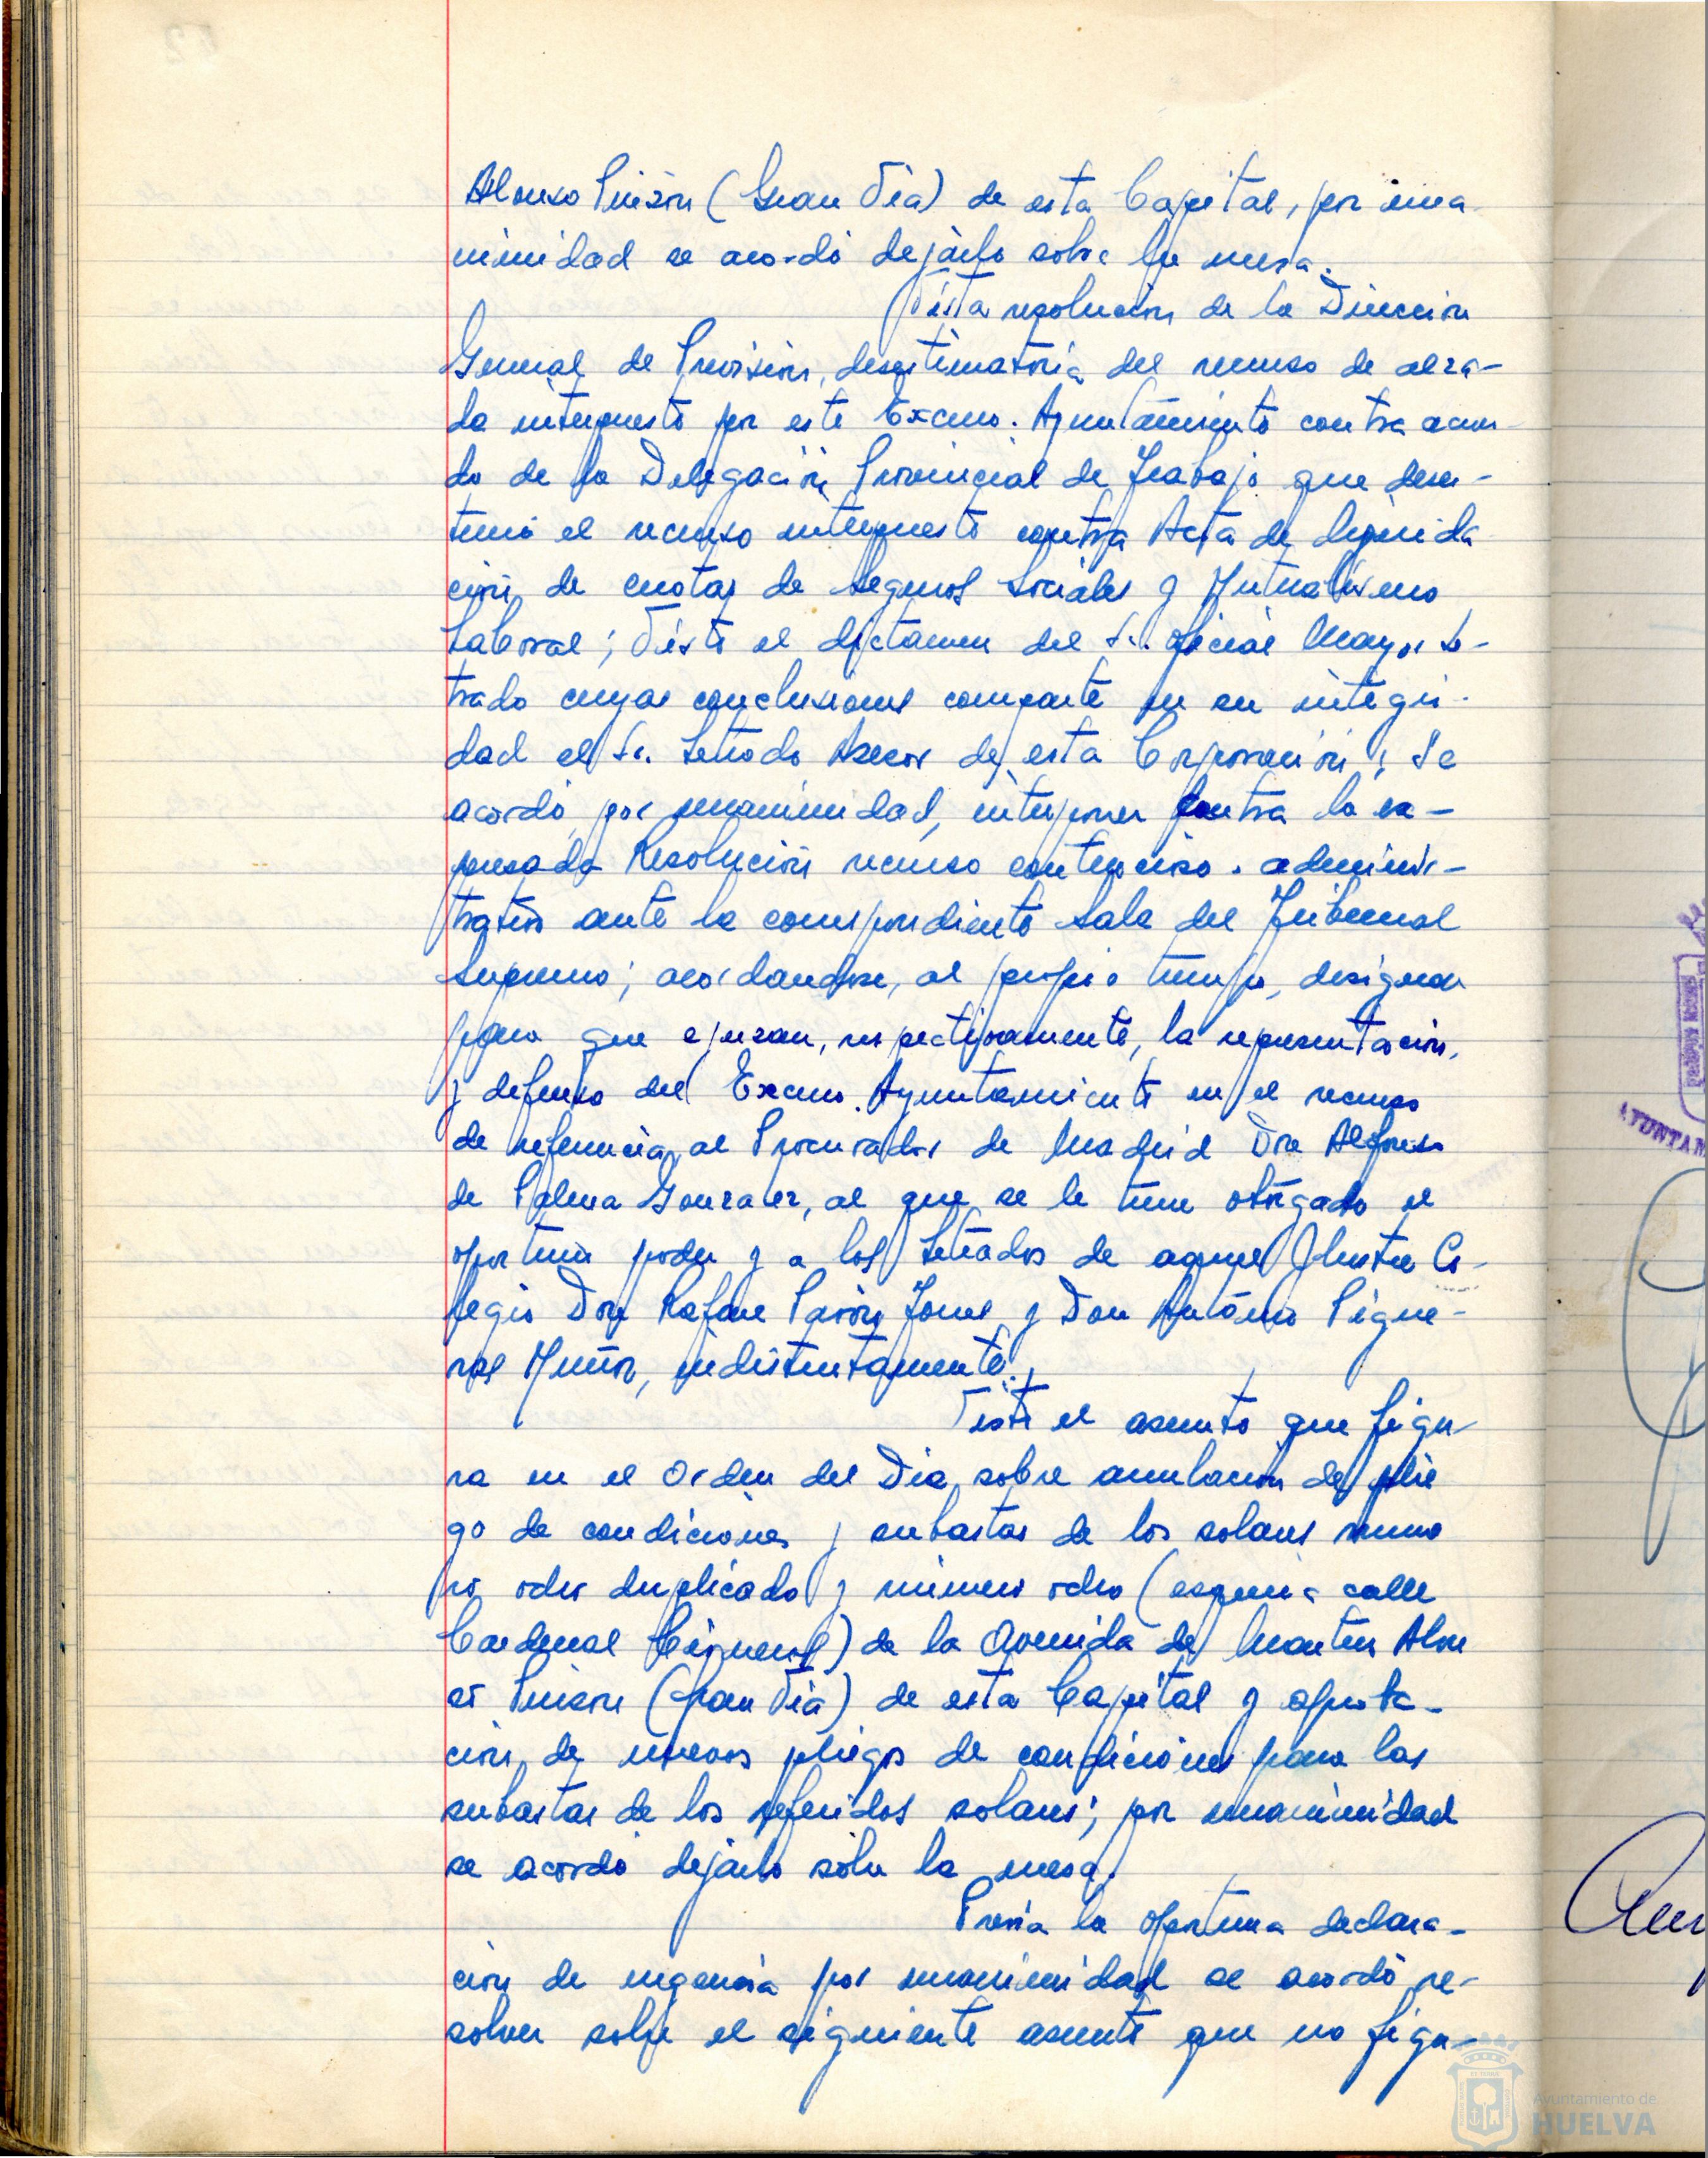 Alonso Pinzón (Gran Vía) de esta Capital, por una
nimidad se acordó dejarlo sobre la mesa.
Vista resolución de la Dirección
General de Previsión, desestimatoria del recurso de alza-
da interpuesto por este Excmo. Ayuntamiento contra acuer-
do de la Delegación Provincial de Trabajo que deses-
timó el recurso interpuesto contra Acta de liquida
ción de cuotas de Seguros Sociales y Mutualismo
Laboral; Visto el dictamen del Sr. Oficial Mayor Le-
trado cuyas conclusiones comparte en su integri-
dad el Sr. Letrado Asesor de esta Corporación; Se
acordó, por unanimidad, interponer contra la ex-
presada Resolución recurso contencioso-adminis-
trativo ante la correspondiente Sala del Tribunal
Supremo; acordándose, al propio tiempo, designar
para que ejerzan, respectivamente, la representación,
y defensa del Excmo. Ayuntamiento en el recurso
de referencia, al Procurador de Madrid Don Alfonso
de Palma González, al que se le tiene otorgado el
oportuno poder y a los Letrados de aquel Ilustre Co-
legio Don Rafael Pavón Torres y Don Antonio Pigue-
ras Muñoz, indistintamente.
Visto el asunto que figu-
ra en el Orden del Día, sobre anulación de plie
go de condiciones y subastas de los solares núme
ro ocho duplicado y número ocho (esquina calle
Cardenal Cisneros) de la Avenida de Martín Alon
so Pinzón (Gran Vía) de esta Capital y aproba-
ción de nuevos pliegos de condiciones para las
subastas de los referidos solares; por unanimidad
se acordó dejarlo sobre la mesa.
Previa la oportuna declara-
ción de urgencia por unanimidad se acordó re-
solver sobre el siguiente asunto que no figu-
Ayuntamiento de
HUELVA